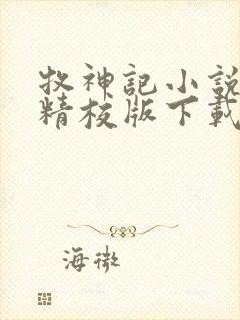 牧神記小説
精校版下載
海微